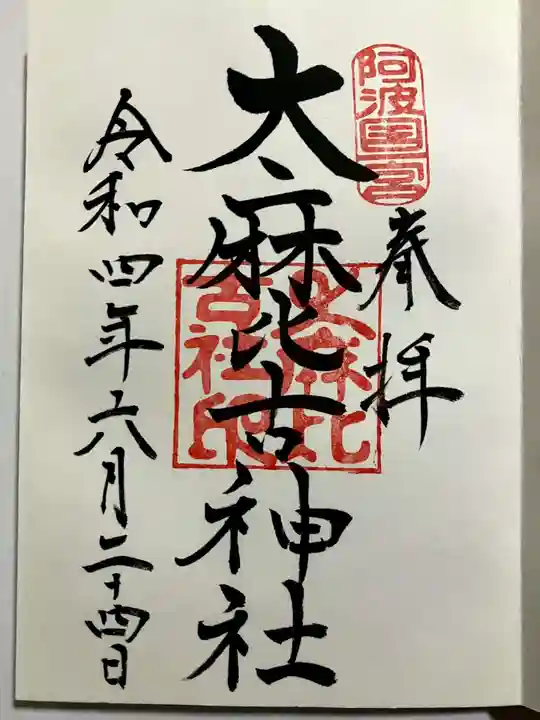 阿波国一宮
奉拝
大麻比古神社
大麻比古社印
令和四年六月二十四日